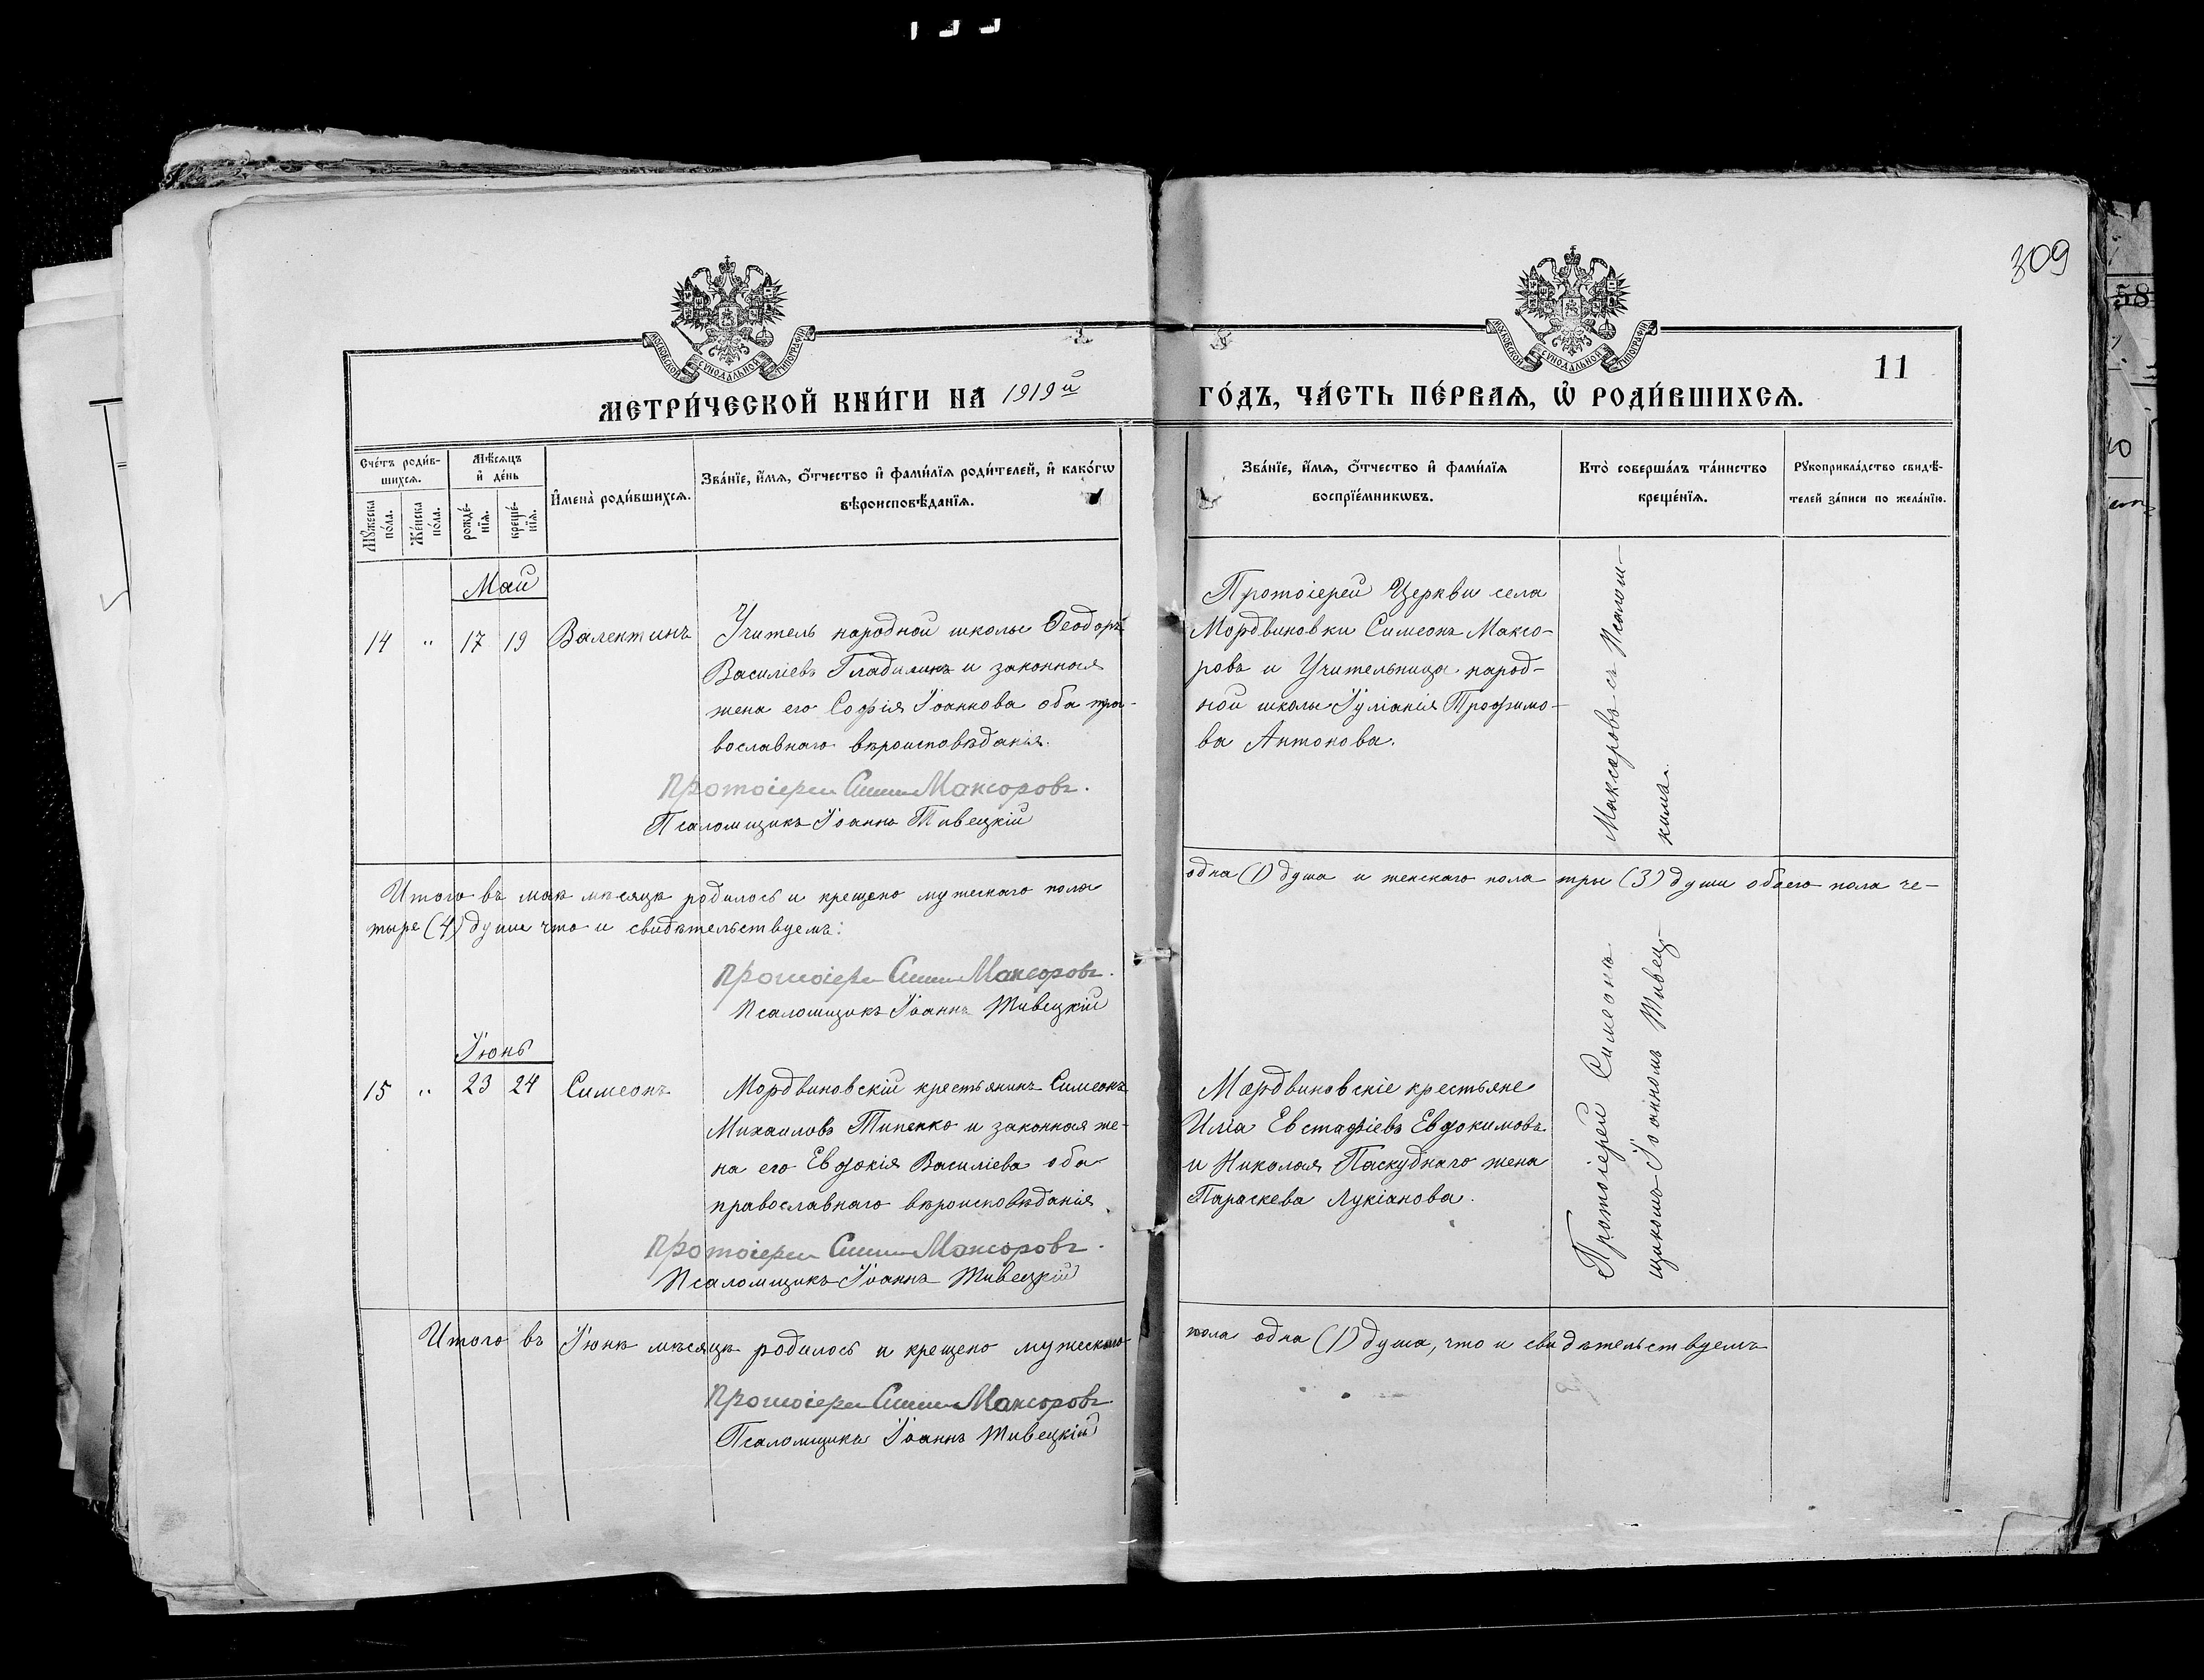 309
МОСКОВСКОЙ СѴНОДАЛЬНОЙ ТИПОГРАФІИ
МОСКОВСКОЙ СѴНОДАЛЬНОЙ ТИПОГРАФІИ
11
МЕТРИ́ЧЕСКОЙ КНИ́ГИ НА 1919й ГО́ДЪ, ЧА́СТЬ ПЕ́РВАЯ, Ѡ РОДИ́ВШИХСЯ.
Сче́тъ роди́в-
шихся.
Мꙋ́жеска
по́ла.
Же́нска
по́ла.
Мѣ́сяцъ
и҆ де́нь
рожде́-
нїя.
креще́-
нїя.
И҆мена̀ роди́вшихся.
Зва́нїе, и҆́мя, ѻ҆́тчество и҆ фами́лїя роди́телей, и҆ како́гѡ
вѣроисповѣ́данїя.
Зва́нїе, и҆́мя, ѻ҆́тчество и҆ фами́лїя
воспрїе́мникѡвъ.
Кто̀ соверша́лъ та́инство
креще́нїя.
Рꙋкоприкла́дство свидѣ́-
телей за́писи по жела́нїю.
Май
14 " 17 19 Валентинъ
Учитель народной школы Ѳеодоръ
Василіевъ Гладилинъ и законная
жена его Софія Іоаннова оба пра-
вославнаго вѣроисповѣданія.
Протоіерей Симеонъ Максоровъ.
Псаломщикъ Іоаннъ Тивецкій
Протоіерей Церкви села
Мордвиновки Симеонъ Максо-
ровъ и Учительница народ-
ной школы Іуліанія Трофимо-
ва Антонова.
Максоровъ съ Псалом-
Итого въ маѣ мѣсяцѣ родилось и крещено мужескаго пола одна (1) душа и женскаго пола три (3) души обоего пола че-
тыре (4) души что и свидѣтельствуемъ:
Протоіерей Симеонъ Максоровъ.
Псаломщикъ Іоаннъ Тивецкій
Іюнь
15 " 23 24 Симеонъ
Мордвиновскій крестьянинъ Симеонъ
Михаиловъ Типенко и законная же-
на его Евдокія Василіева оба
православнаго вѣроисповѣданія
Протоіерей Симеонъ Максоровъ.
Псаломщикъ Іоаннъ Тивецкій
Мордвиновскіе крестьяне
Илія Евстафіевъ Евдокимовъ
и Николая Паскуднаго жена
Параскева Лукіанова.
Протоіерей Симеонъ
щикомъ Іоанномъ Тивец-
кимъ.
Итого въ Іюнѣ мѣсяцѣ родилось и крещено мужескаго пола одна (1) душа, что и свидѣтельствуемъ
Протоіерей Симеонъ Максоровъ.
Псаломщикъ Іоаннъ Тивецкій
58